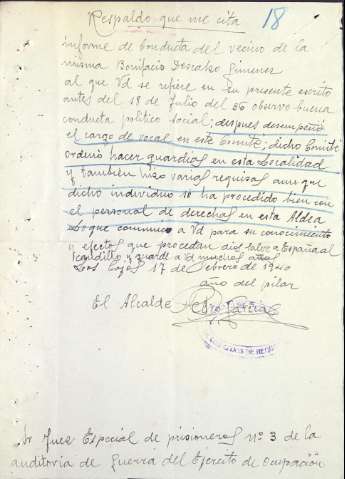 Respaldo que me cita 18
informe de conducta del vecino de la
misma Bonifacio Descalso Gimenez
al que Vd se refiere en su presente escrito
antes del 18 de Julio del 36 observo buena
conducta politico social; despues desempeñó
el cargo de vocal en este Comité; dicho Comité
ordenó hacer guardias en esta localidad
y tambien hizo varias requisas aun que
dicho individuo se ha procedido bien con
el personal de derechas en esta Aldea
Lo que comunico a Vd para su conocimiento
y efectos que procedan dios salve a España al
caudillo y guarde a Vd muchos años
Los 17 de Febrero de 1940
año del pilar
El Alcalde
Juez Especial de prisioneros nº 3 de la
auditoria de Guerra del Ejercito de Ocupación